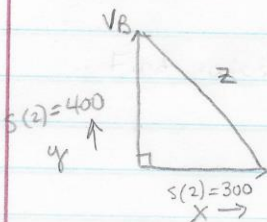 VB
z
s(2)=400
↑
y
s(2)=300
x →